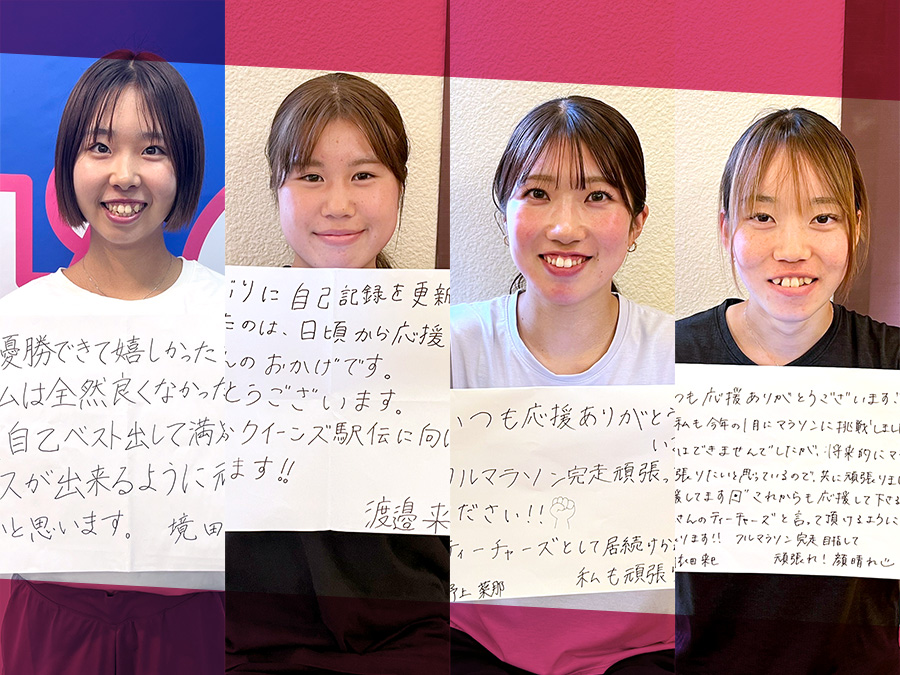 優勝できて嬉しかった
ムは全然良くなかった
自己ベスト出して満
スが出来るように
いと思います。 境田
ぶりに自己記録を更新
たのは、日頃から応援
んのおかげです。
とうございます。
クイーンズ駅伝に向け
ます!!
渡邉 来
いつも応援ありがとう
フルマラソン完走頑張っ
ださい!!
ティーチャーズとして居続け
私も頑張
野上 葉那
つも応援ありがとうございます!
私も今年の1月にマラソンに挑戦しまし
はできませんでしたが、将来的にマ
張りたいと思っているので、共に頑張りまし
援してます これからも応援して下さる
さんのティーチャーズと言って頂けるように
ります!! フルマラソン完走目指して
頑張れ!顔晴れ